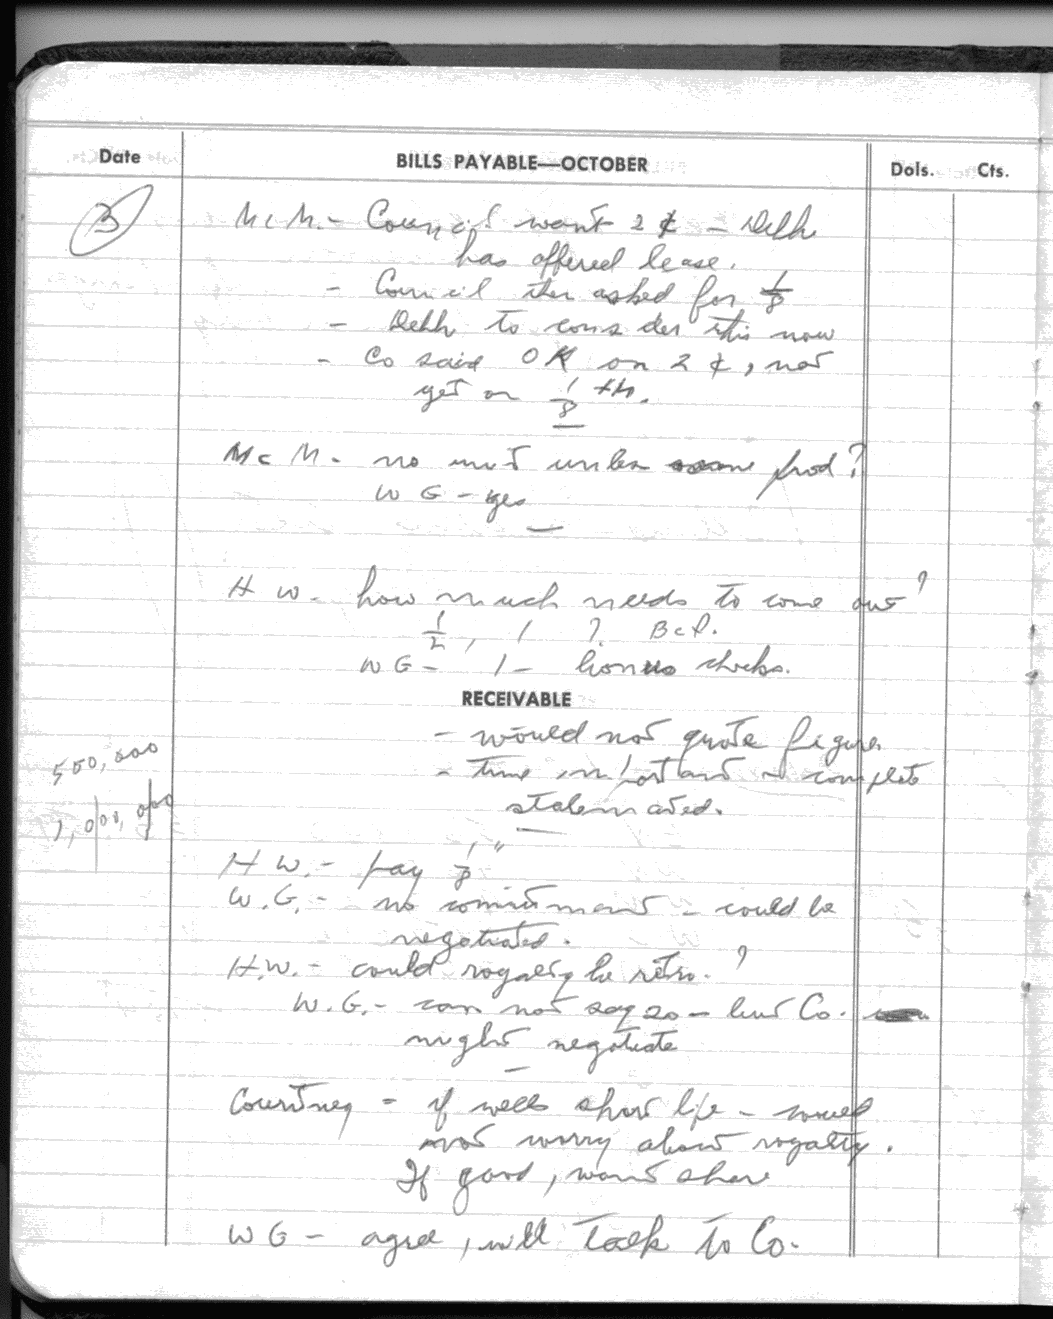 Date
BILLS PAYABLE—OCTOBER
Dols.
Cts.
3
McM. - Council want 2 ¢ - Delh
has offered lease.
- Council then asked for 1/8
- Delh to consider this now
- Co said OK on 2 ¢, not
yet on 1/8 th.
McM. - no unit unless some prod?
WG - yes
H W. - how much needs to come out?
1/2, 1 ? Bcf.
WG - 1 - bonus checks.
RECEIVABLE
- would not quote figures
- time important - complete
stalemated.
500,000
1,000,000
H W. - pay 1/8 "
W.G. - no commitment - could be
negotiated.
H.W. - could royalty be retro. ?
W.G. - can not say so - but Co.
might negotiate
Courtney - if wells short life - would
not worry about royalty.
If good, want share
WG - agree, will talk to Co.